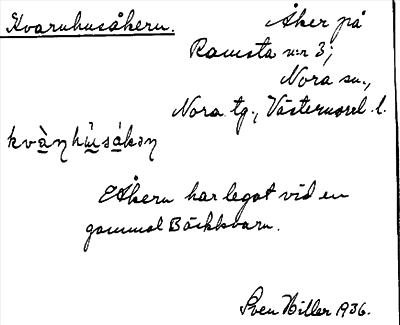 Kvarnhusåkern.
Åker på
Ramsta n:r 3;
Nora sn.,
Nora tg., Västernorrl. l.
kvànhùsákəɳ
Åkern har legat vid en
gammal Bäckkvarn.
Sven Hiller 1936.